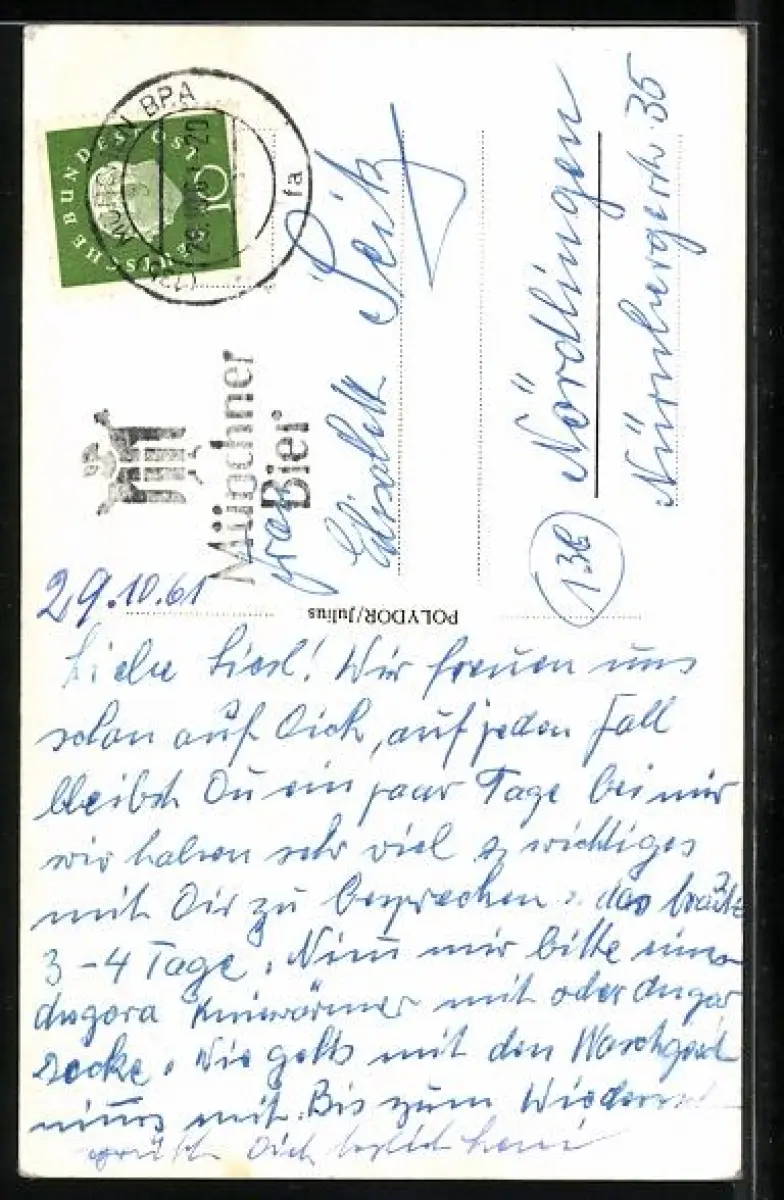 DEUTSCHE BUNDESPOST
10
MÜNCHEN BPA
fa
Münchner
Bier
Frau
Elisabeth
(13b) Nördlingen
Nürnbergerstr. 35
POLYDOR/Julius
29.10.61
Liebe Liesl! Wir freuen uns
schon auf Dich, auf jeden Fall
bleibst Du ein paar Tage bei mir
wir haben sehr viel wichtiges
mit Dir zu besprechen, das
3-4 Tage. Nimm mir bitte einen
Angora Kniewärmer mit oder Angora
socke. Wie gehts mit den
nimms mit. Bis zum
Dich